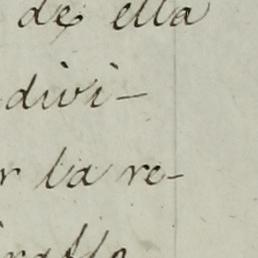 de ella
divi-
r la re-